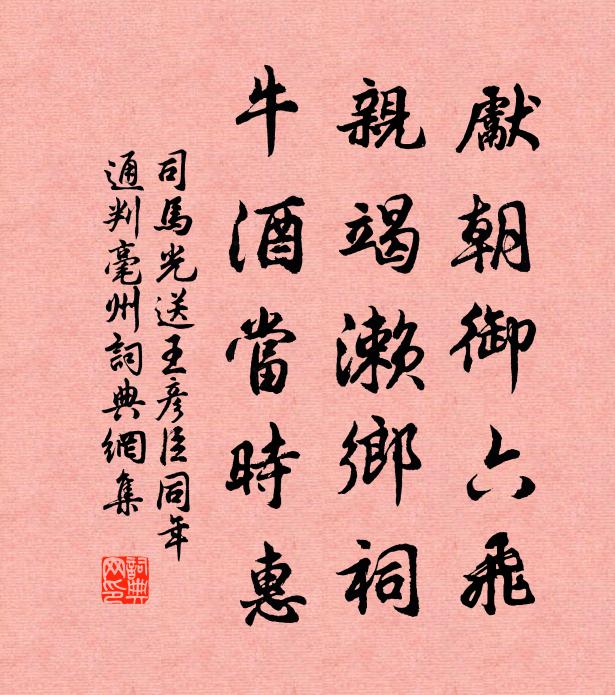 獻朝御六飛
親竭瀨鄉祠
牛酒當時惠
司馬光送王彥臣同年
通判亳州詞典網集
詞典网印